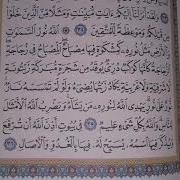 وَلَقَدْ أَنزَلْنَا إِلَيْكُمْ ءَايَٰتٍ مُّبَيِّنَٰتٍ وَمَثَلًا مِّنَ ٱلَّذِينَ خَلَوْا۟
مِن قَبْلِكُمْ وَمَوْعِظَةً لِّلْمُتَّقِينَ ٣٤ ٱللَّهُ نُورُ ٱلسَّمَٰوَٰتِ
وَٱلْأَرْضِ مَثَلُ نُورِهِۦ كَمِشْكَوٰةٍ فِيهَا مِصْبَاحٌ ٱلْمِصْبَاحُ فِى زُجَاجَةٍ
ٱلزُّجَاجَةُ كَأَنَّهَا كَوْكَبٌ دُرِّىٌّ يُوقَدُ مِن شَجَرَةٍ مُّبَٰرَكَةٍ زَيْتُونَةٍ
لَّا شَرْقِيَّةٍ وَلَا غَرْبِيَّةٍ يَكَادُ زَيْتُهَا يُضِىٓءُ وَلَوْ لَمْ تَمْسَسْهُ نَارٌ
نُّورٌ عَلَىٰ نُورٍ يَهْدِى ٱللَّهُ لِنُورِهِۦ مَن يَشَآءُ وَيَضْرِبُ ٱللَّهُ ٱلْأَمْثَٰلَ
لِلنَّاسِ وَٱللَّهُ بِكُلِّ شَىْءٍ عَلِيمٌ ٣٥ فِى بُيُوتٍ أَذِنَ ٱللَّهُ أَن تُرْفَعَ
وَيُذْكَرَ فِيهَا ٱسْمُهُۥ يُسَبِّحُ لَهُۥ فِيهَا بِٱلْغُدُوِّ وَٱلْءَاصَالِ ٣٦